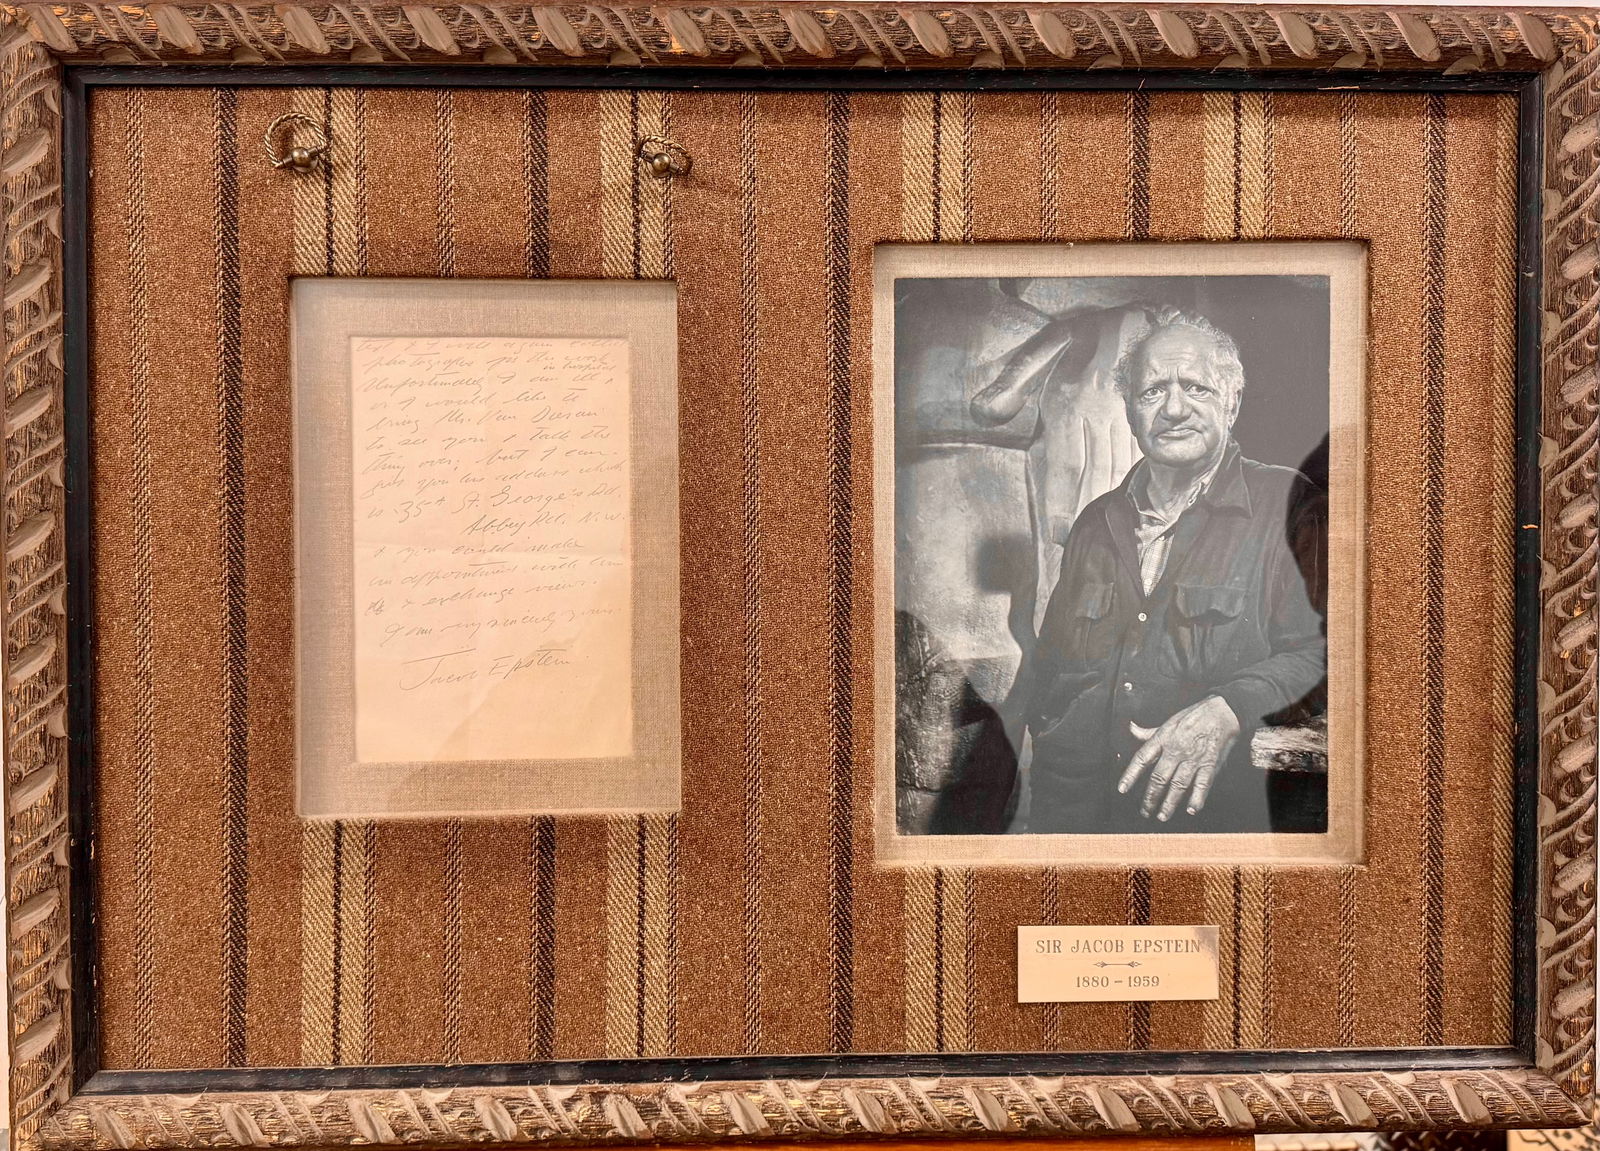 photographs for the work
in hospital
Unfortunately I am ill
or I would like to
bring Mr. Van
to see you & talk the
thing over; but I can
give you his address which
is 35A St. George's Rd.
Abbey Rd. N.W.
& you could make
an appointment with him
& exchange views.
I am very sincerely yours
Jacob Epstein
SIR JACOB EPSTEIN
1880-1959